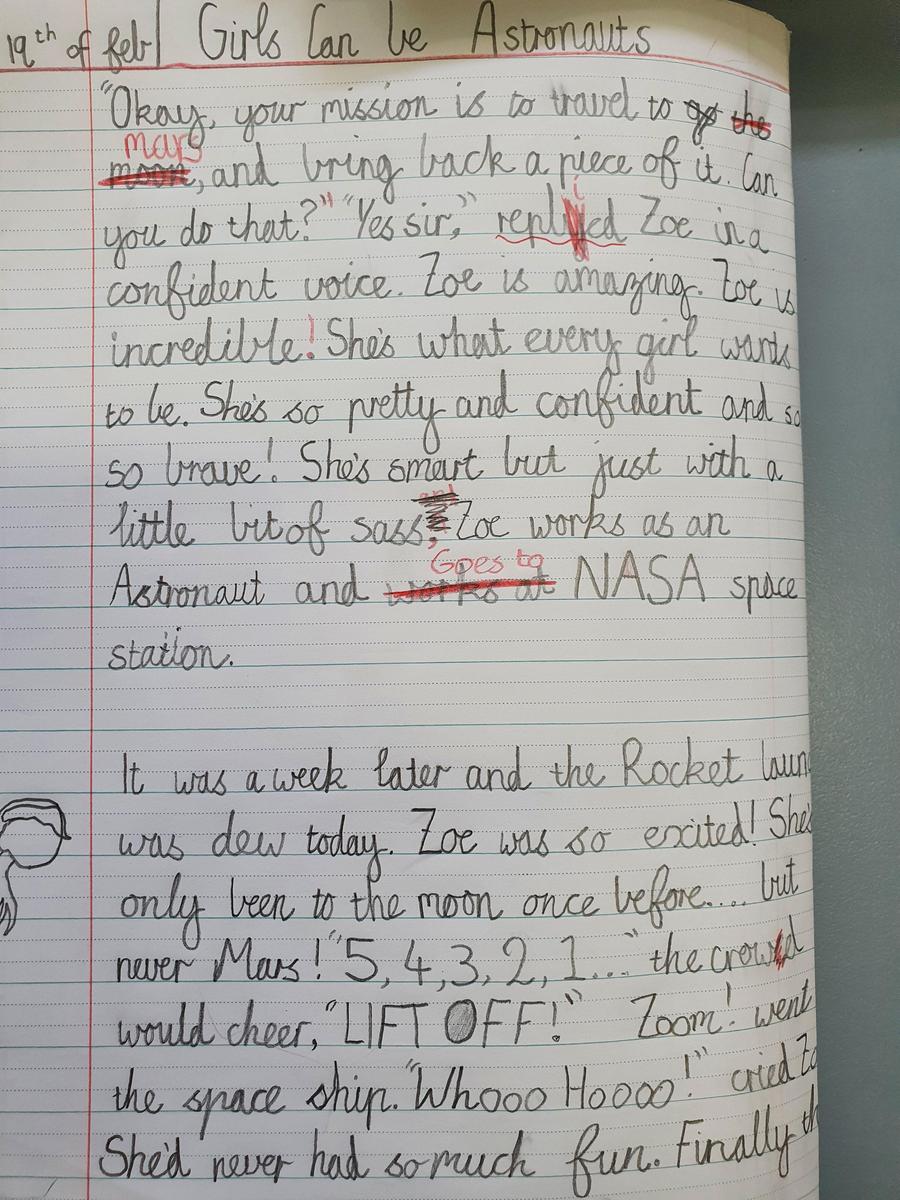 19th of feb Girls Can be Astronauts
"Okay, your mission is to travel to go the
mars
moon, and bring back a piece of it. Can
you do that?" "Yes sir," replied Zoe in a
confident voice. Zoe is amazing. Zoe is
incredible! She's what every girl wants
to be. She's so pretty and confident and so
so brave! She's smart but just with a
and
little bit of sass. Zoe works as an
Goes to
Astronaut and works at NASA space
station.
It was a week later and the Rocket laun
was dew today. Zoe was so excited! She's
only been to the moon once before.... but
never Mars! "5, 4, 3, 2, 1..." the crowd
would cheer, "LIFT OFF!" Zoom! went
the space ship. "Whooo Hoooo!" cried Zo
She'd never had so much fun. Finally th